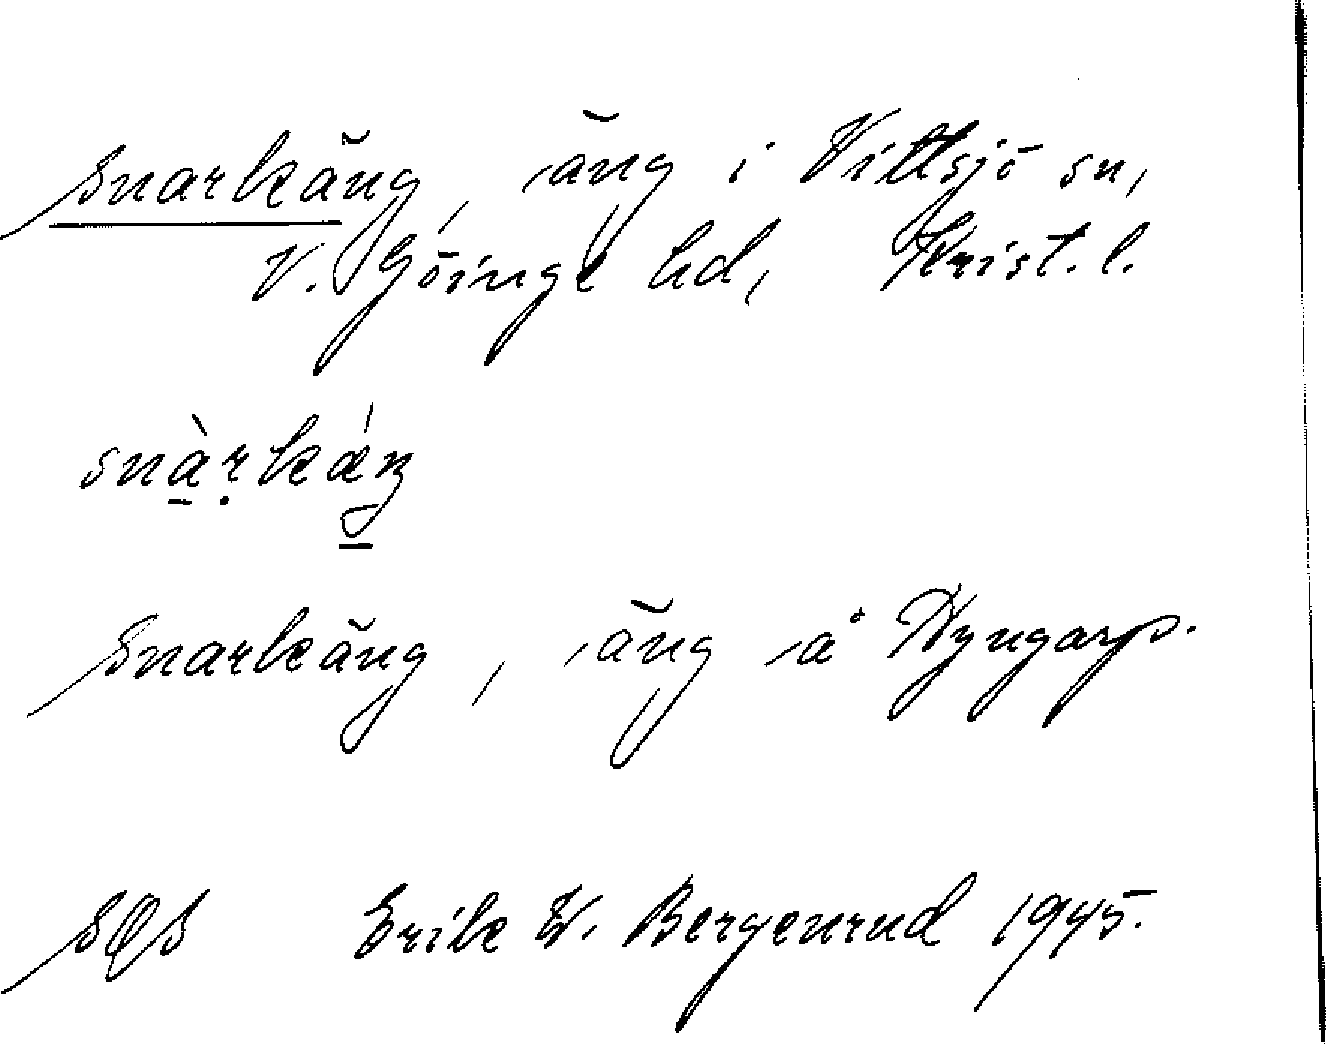 Snarkäng, äng i Vittsjö sn,
V. Göinge hd, Krist. l.
snàrkǽŋ
Snarkäng, äng å
Erik W. Bergenrud 1945.